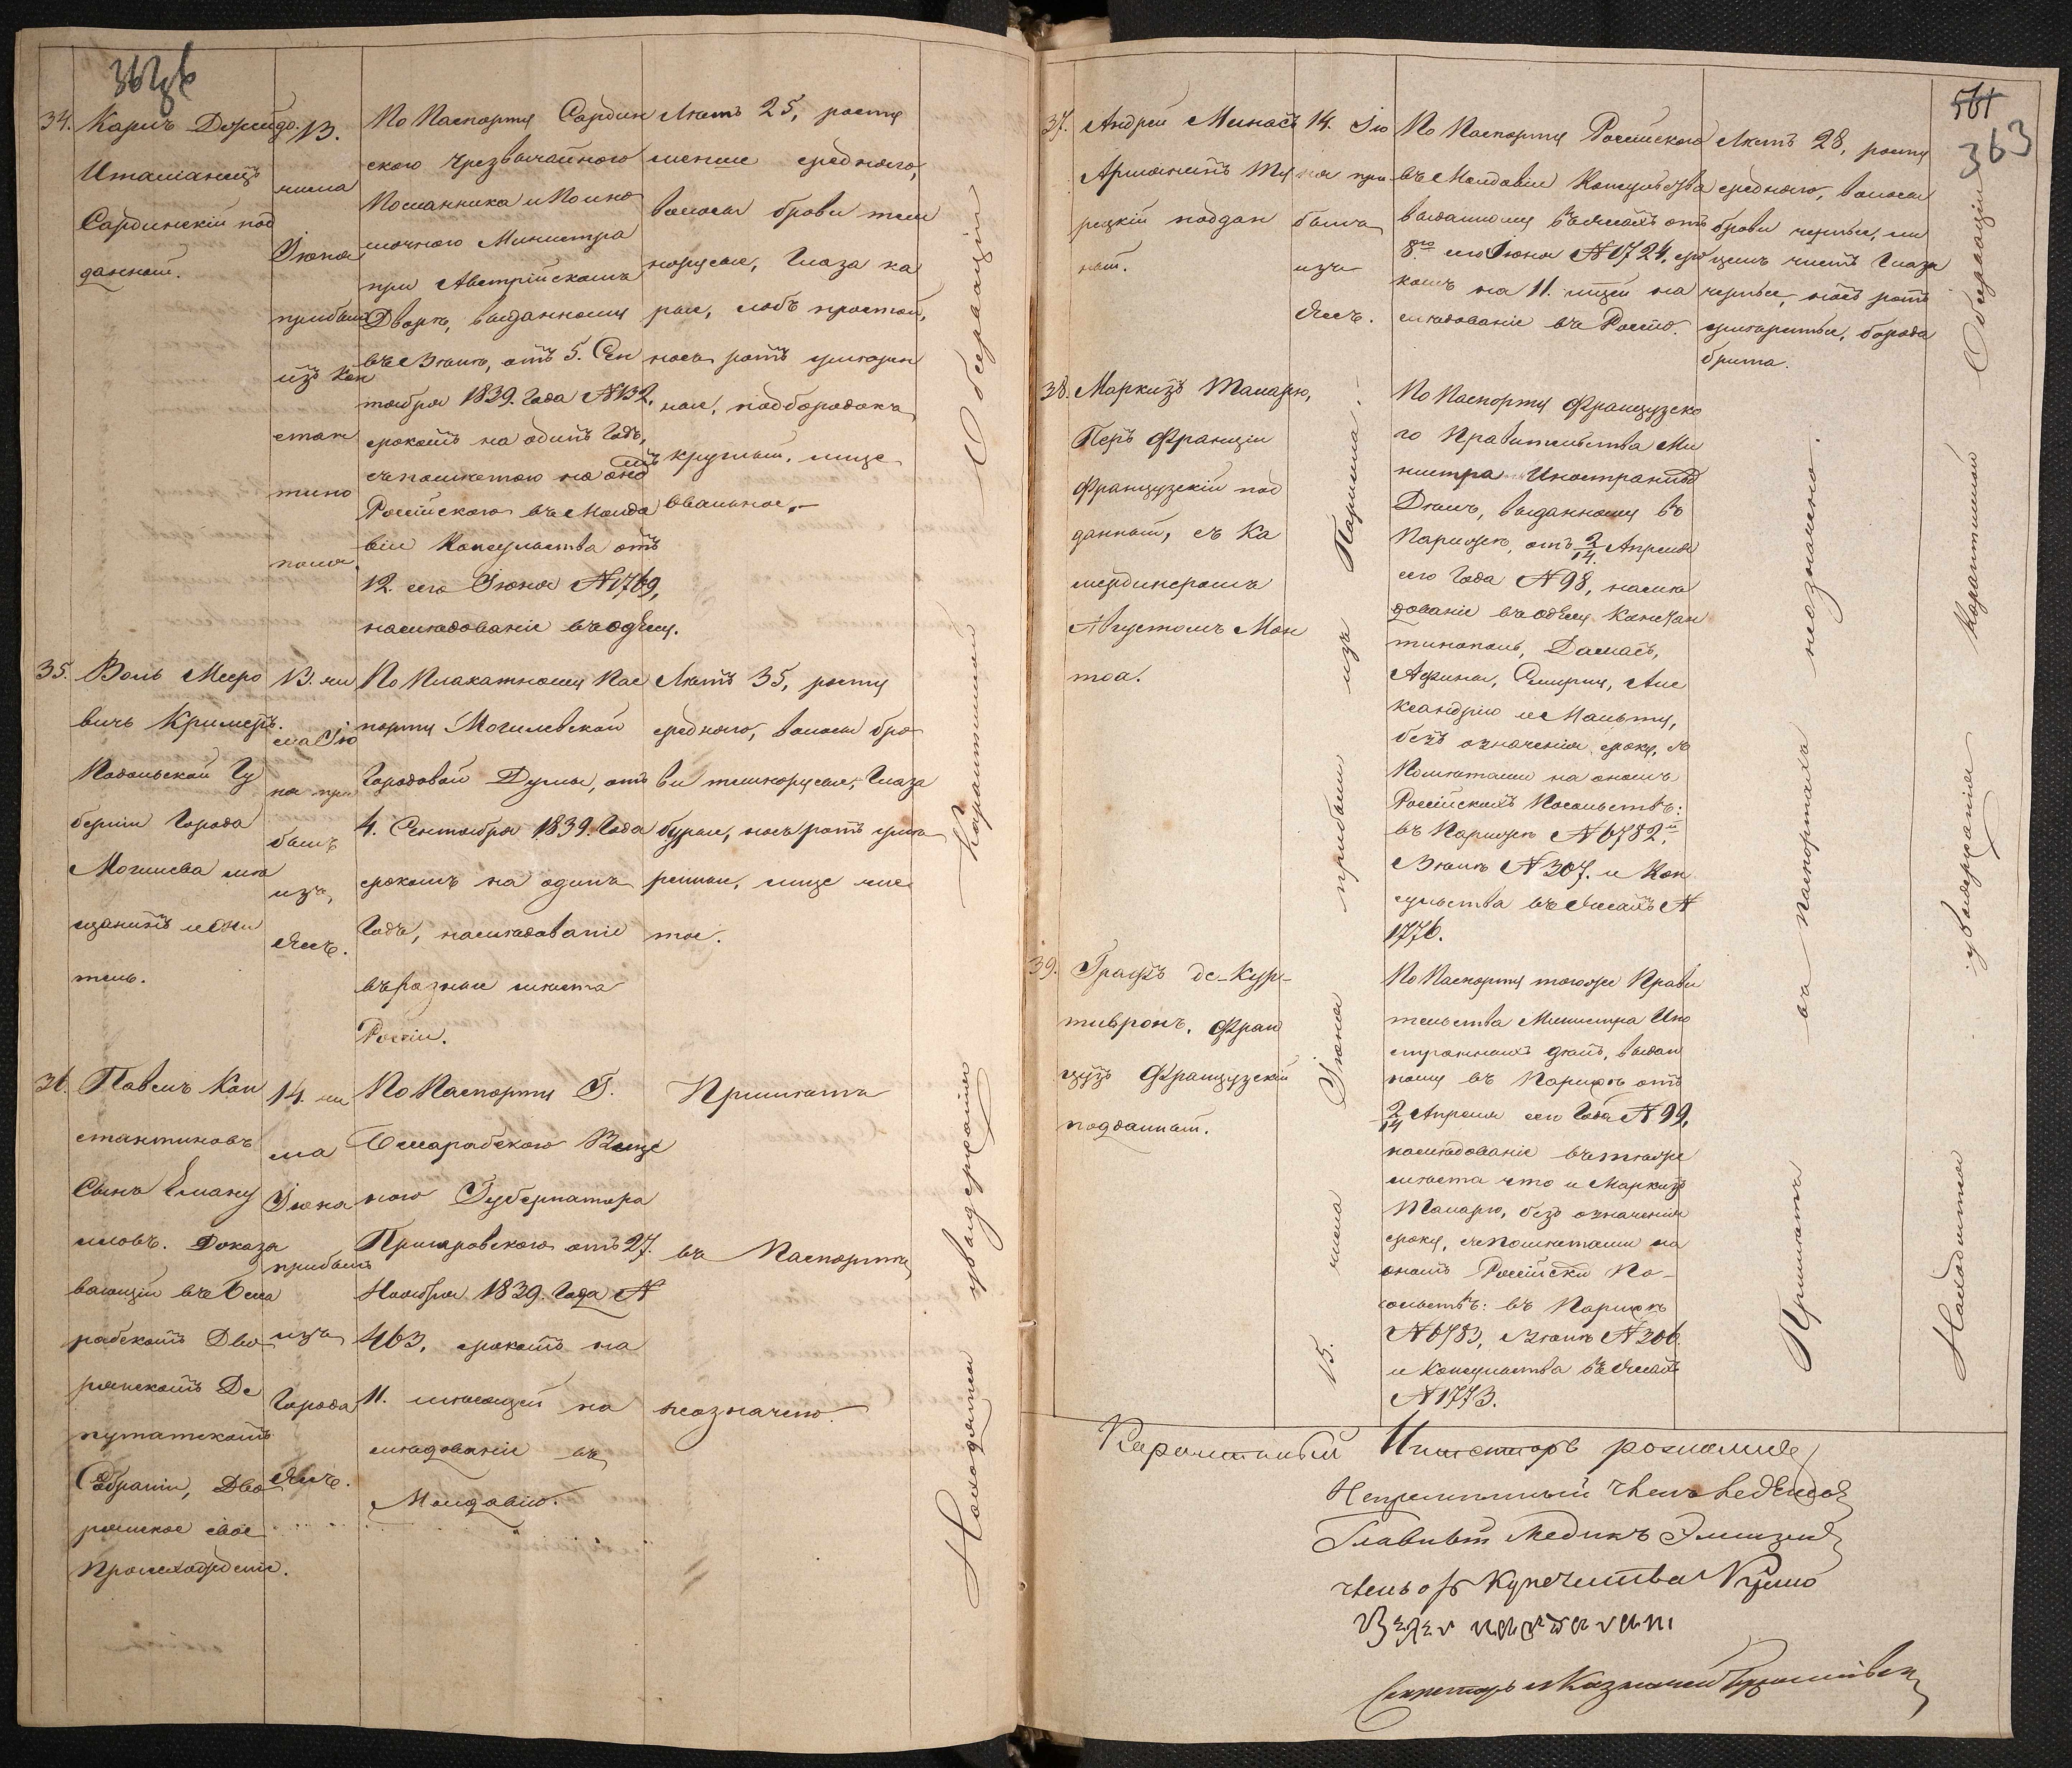 362об
34.
Карлъ Джендо.
Италіанецъ
Сардинскій под
данный.
13.
числа
Іюня
прибылъ
изъ Кон
стан
тино
поля.
По Паспорту Сардин
скаго Чрезвычайного
Посланника и Полно
мочного Министра
при Австрійскомъ
Дворѣ, выданному
въ Вѣнѣ, отъ 5. Сен
тября 1839. Года №132.
срокомъ на одинъ Годъ,
съ помѣтою на ономъ
Россійского въ Молда
віи Консульства отъ
12. сего Іюня №1769,
на слѣдованіе въ Одессу.
Лѣтъ 25, росту
менше средняго,
волосы брови тем
норусые, Глаза ка
рые, лобъ простой,
носъ ротъ умѣрен
ные, подбородокъ
круглый, лице
овальное.
35.
Воль Мееро
вичь Кримеръ.
Подольской Гу
берніи Города
Могилева мѣ
щанинъ и жи
тель.
13. чи
сла Ію
ня при
былъ
изъ
Яссъ.
По Плакатному Пас
порту Могилевской
Городовой Думы, отъ
4. Сентября 1839. Года
срокомъ на одинъ
Годъ, на слѣдованіе
въ разные мѣста
Россіи.
Лѣтъ 35, росту
средняго, волосы бро
ви темнорусые, Глаза
бурые, носъ ротъ умѣ
ренные, лице чис
тое.
36.
Павелъ Кон
стантиновъ
Сынъ Еману
иловъ. Доказа
вающій въ Бесса
рабскомъ Дво
рянскомъ Де
путатскомъ
Собраніи, Дво
рянское свое
Происхожденіе.
14. чи
сла
Іюня
прибылъ
изъ
Города
Яссъ.
По Паспорту Г.
Бессарабского Воен
ного Губернатора
отъ 27.
Ноября 1839. Года №
463, срокомъ на
11. мѣсяцей на
слѣдованіе въ
Молдавію.
Примѣтъ
въ Паспортѣ
неозначено.
Находятся въ выдержаніи Карантинной Обсерваціи
561
363
37.
Андрей Минасъ
Армянинъ Ту
рецкій поддан
ный.
14. Ію
ня при
былъ
изъ
Яссъ.
По Паспорту Россійского
въ Молдавіи Консульства
выданному въ Яссахъ отъ
8го сего Іюня №1724, сро
комъ на 11. мѣсяцей на
слѣдованіе въ Россію.
Лѣтъ 28, росту
средняго, волосы
брови черные, ли
цемъ чистъ Глаза
черные, носъ ротъ
умѣренные, борода
брита.
38.
Маркизъ Таларю,
Перъ Франціи
Французскій под
данный, съ Ка
мердинеромъ
Августомъ Мон
тоа.
По Паспорту Французско
го Правительства Ми
нистра Иностранныхъ
Дѣлъ, выданному въ
Парижѣ, отъ 2/14 Апрѣля
сего Года №98, на слѣ
дованіе въ Одессу Констан
тинополь, Дамасъ,
Афины, Смирну, Але
ксандрію и Мальту,
безъ означенія сроку, съ
Помѣтами на ономъ
Россійскихъ Посольствъ:
въ Парижѣ №6782,
Вѣнѣ №307. и Кон
сульства въ Яссахъ №
1776.
39.
Графъ де-Кур-
тивронъ, Фран
цузъ Французскій
подданный.
По Паспорту тогоже Прави
тельства Министра Ино
странныхъ дѣлъ, выдан
ному въ Парижѣ отъ
2/14 Апрѣля сего Года №99,
на слѣдованіе въ тѣже
мѣста что и Маркизъ
Таларю, безъ означенія
сроку, съ помѣтами на
ономъ Россійски По-
сольствъ: въ Парижѣ
№6783, Вѣнѣ №306
и Консульства въ Яссахъ
№1773.
15. числа Іюня прибыли изъ Парижа.
Примѣтъ въ Паспортахъ неозначено.
Находятся въ выдержаніи Карантинной Обсерваціи
Карантинный Инспекторъ
Непременный Членъ
Главный Медикъ
Членъ отъ Купечества
Секретарь и Казначей